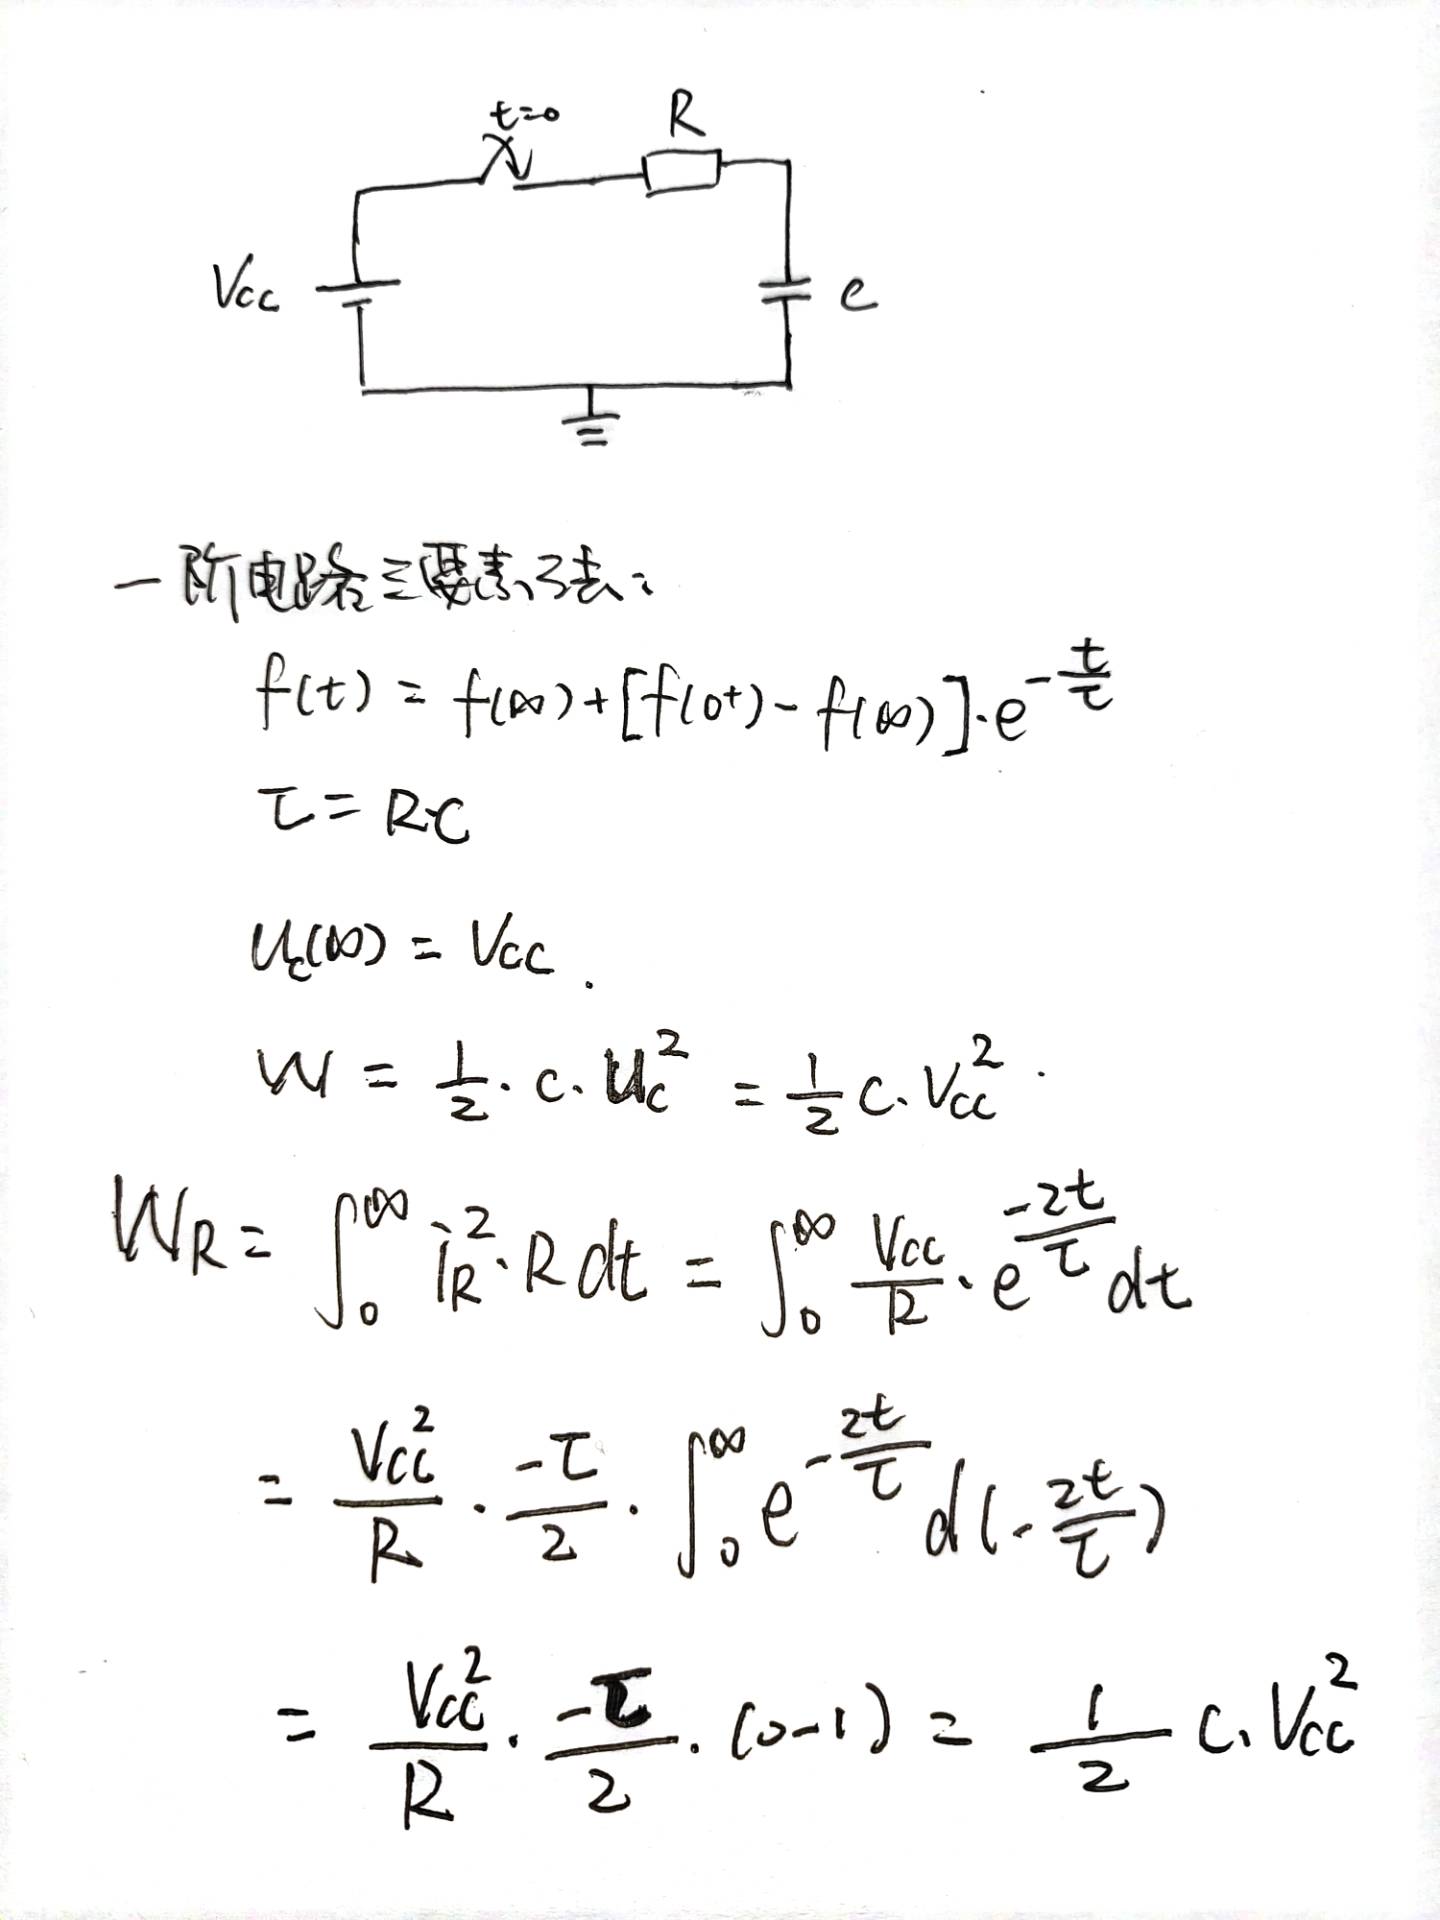 t=0
R
Vcc
C
一阶电路三要素法:
f(t) = f(∞)+[f(0+)-f(∞)]·e^{-t/τ}
τ = R·C
Uc(∞) = Vcc.
W = 1/2 · C · Uc² = 1/2 C · Vcc²
W_R = ∫₀^∞ i_R² · R dt = ∫₀^∞ Vcc/R · e^{-2t/τ} dt
= Vcc²/R · -τ/2 · ∫₀^∞ e^{-2t/τ} d(-2t/τ)
= Vcc²/R · -τ/2 · (0-1) = 1/2 C · Vcc²